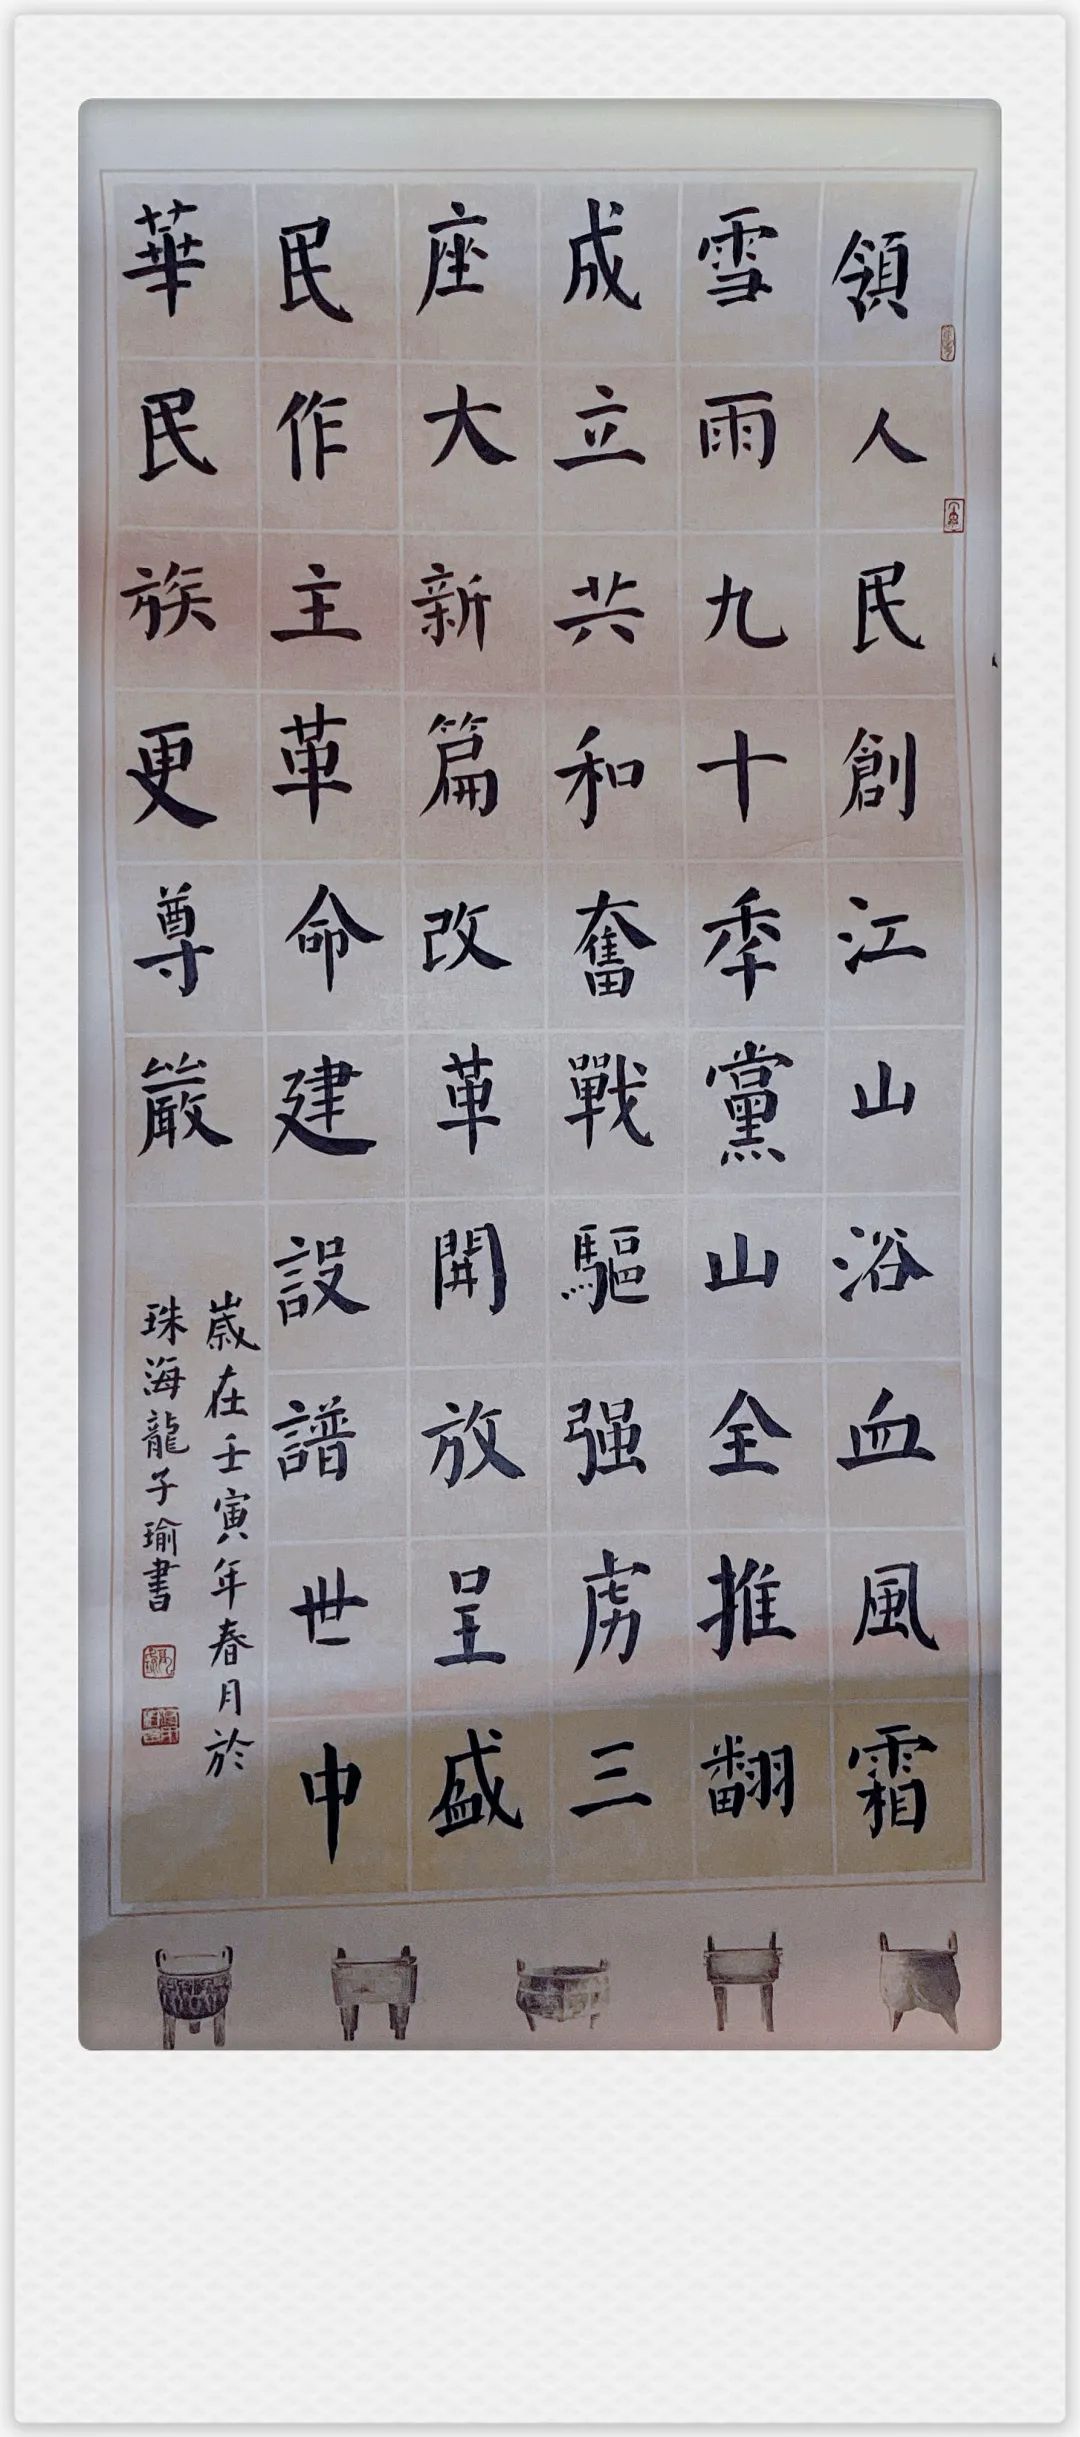 領人民創江山浴血風霜
雪雨九十秊黨山全推翻
成立共和奮戰驅强虏三
座大新篇改革開放呈盛
民作主革命建設譜世中
華民族更尊嚴
歲在壬寅年春月於
珠海龍子瑜書